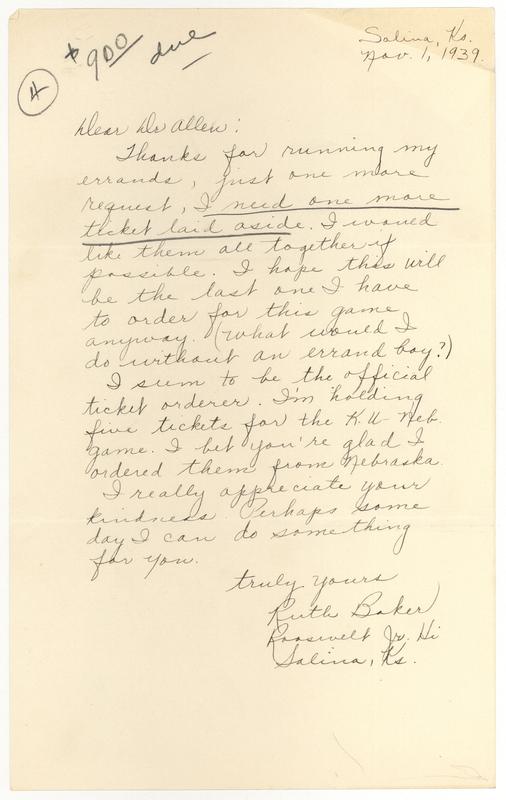 4
$9.00 due
Salina, Ks.
Nov. 1, 1939.
Dear Dr Allen:
Thanks for running my
errands, just one more
request, I need one more
ticket laid aside. I would
like them all together if
possible. I hope this will
be the last one I have
to order for this game
anyway. (What would I
do without an errand boy?)
I sum to be the official
ticket orderer. I'm holding
five tickets for the K.U-Neb.
game. I bet you're glad I
ordered them from Nebraska.
I really appreciate your
kindness. Perhaps some
day I can do something
for you.
truly yours
Ruth Baker
Roosevelt Jr. Hi
Salina, Ks.